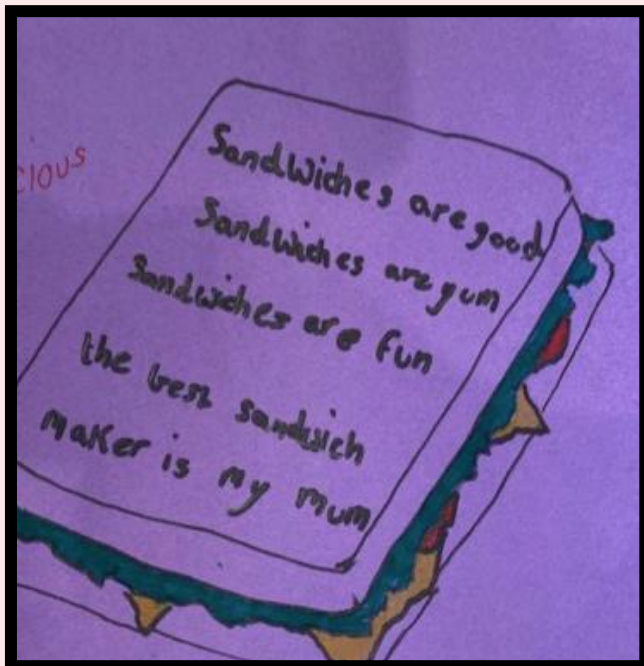 Sandwiches are good
Sandwiches are yum
Sandwiches are fun
the best sandwich
maker is my mum